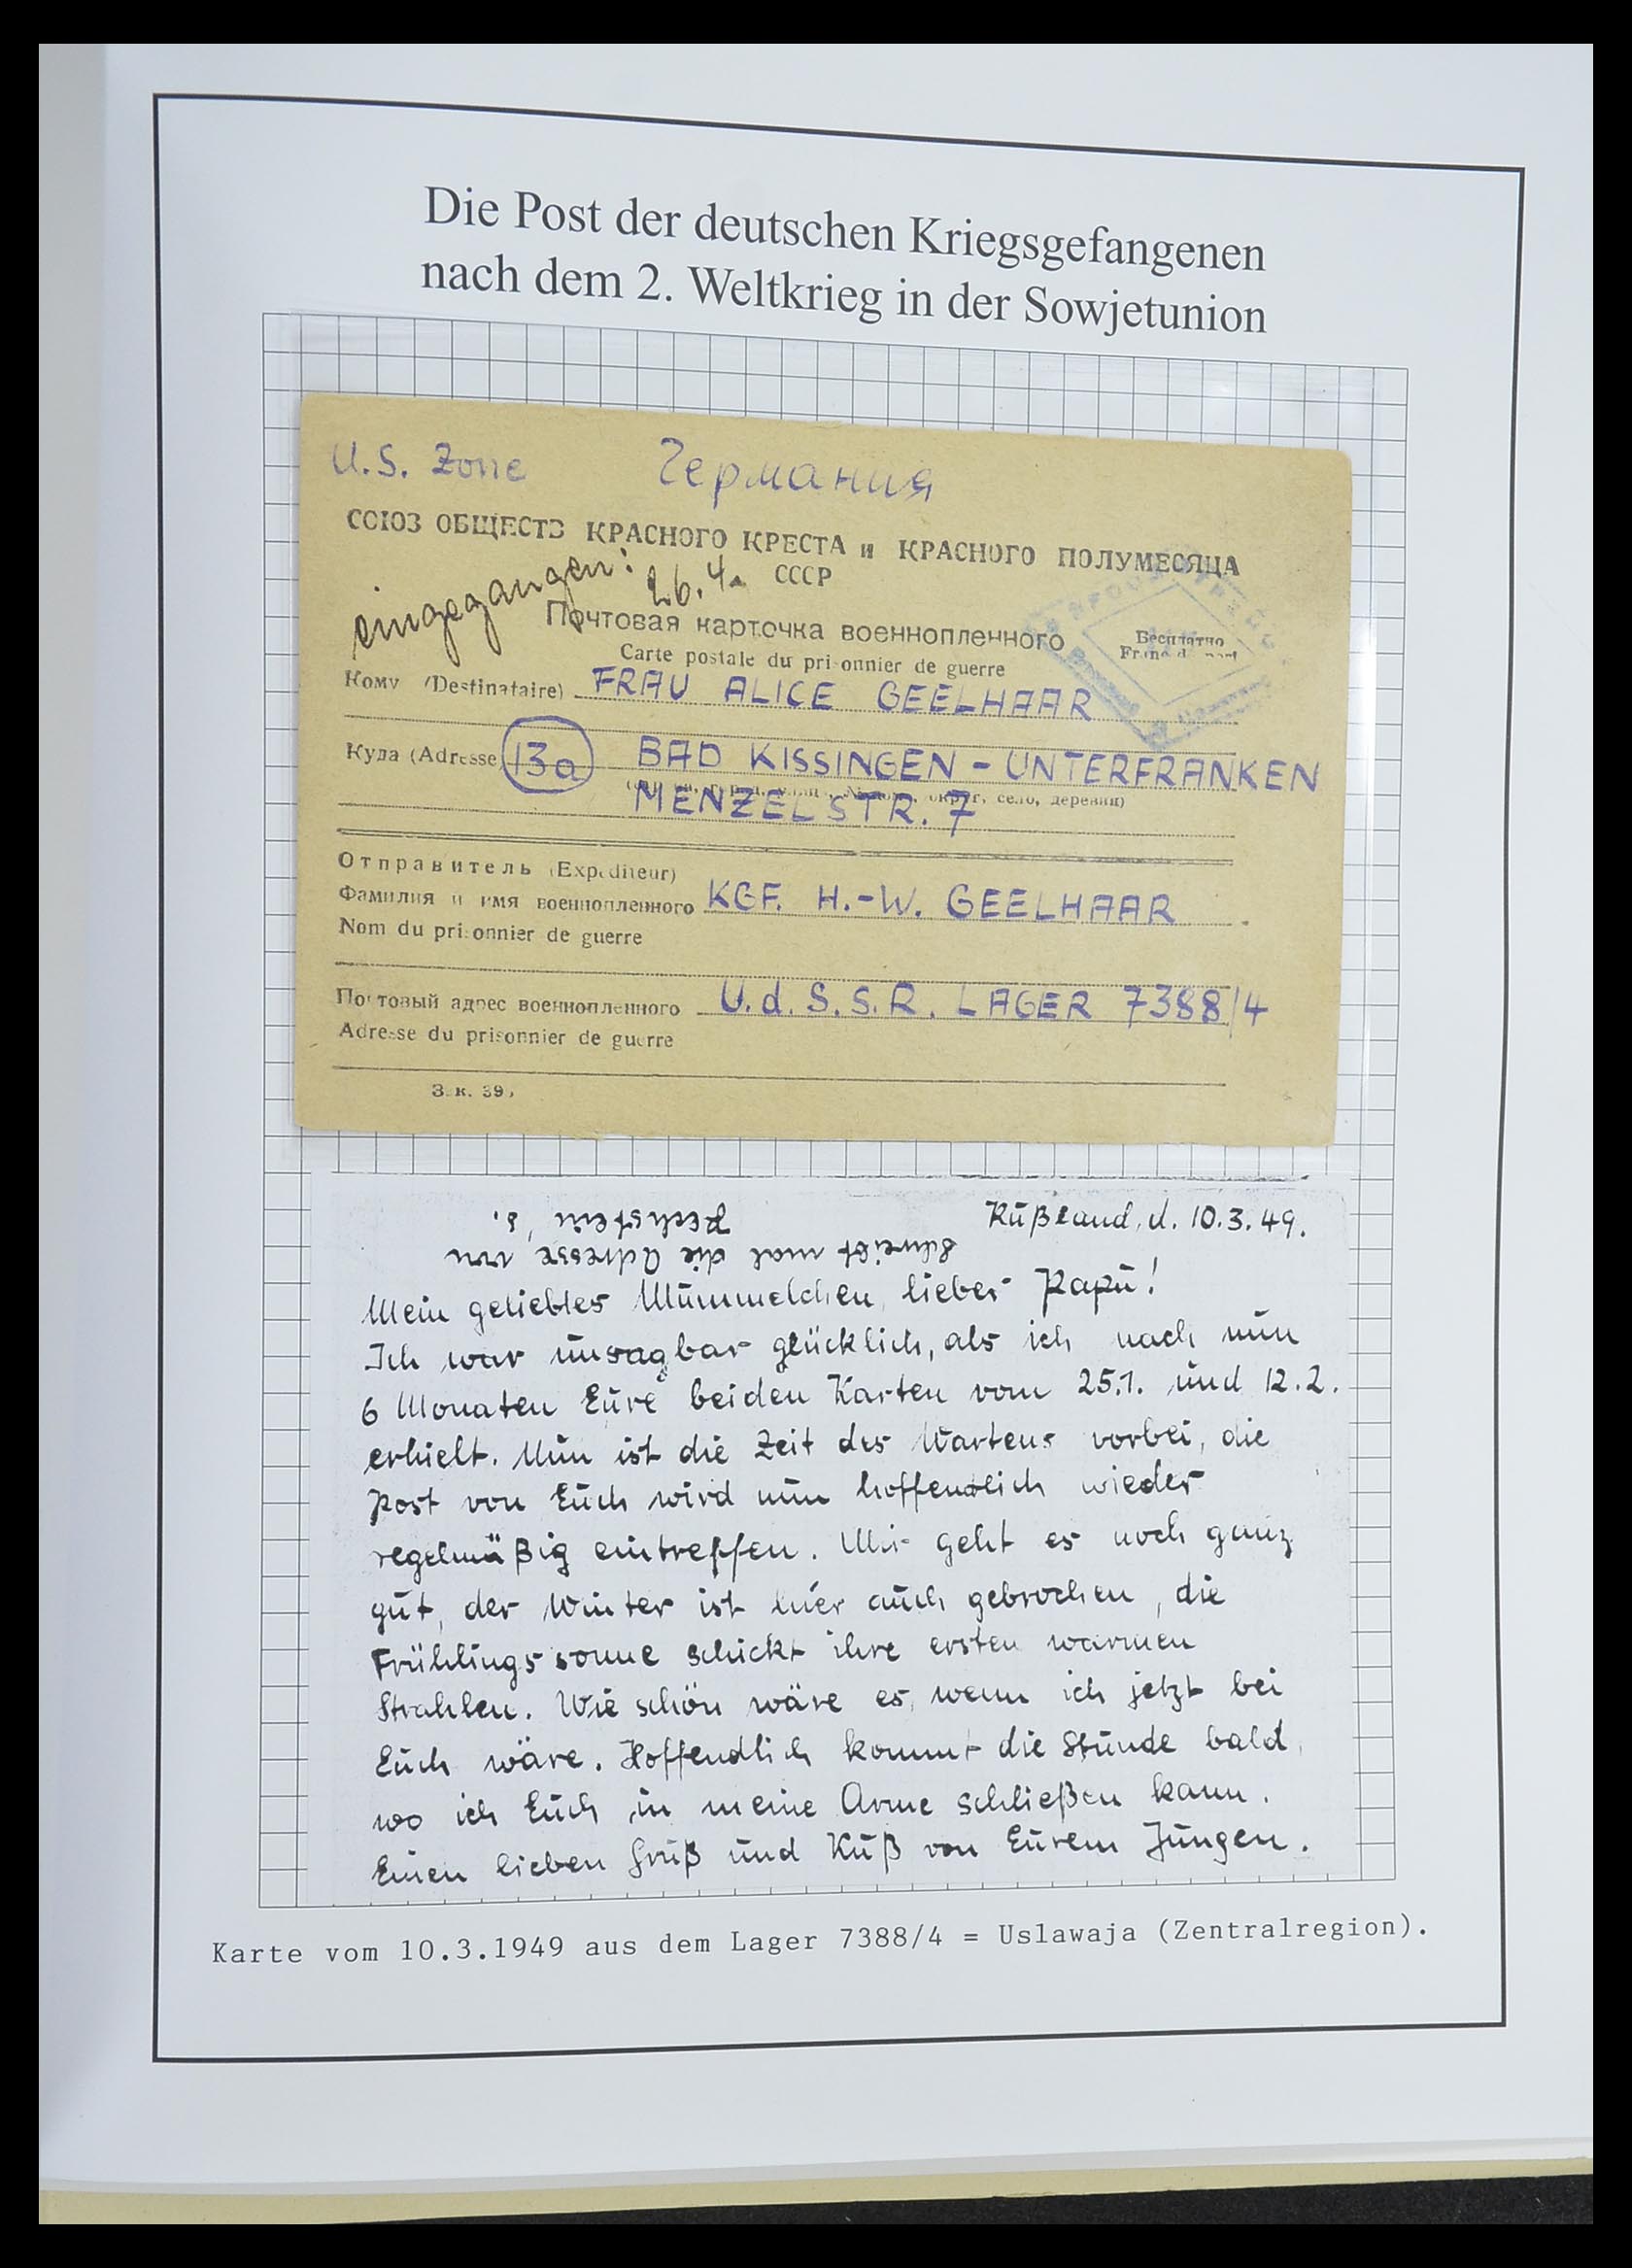 Die Post der deutschen Kriegsgefangenen
nach dem 2. Weltkrieg in der Sowjetunion
U.S. Zone Германия
СОЮЗ ОБЩЕСТВ КРАСНОГО КРЕСТА и КРАСНОГО ПОЛУМЕСЯЦА
СССР
eingegangen: 26.4.
Почтовая карточка военнопленного
Carte postale du prisonnier de guerre
Бесплатно
Franc de port
Кому (Destinataire) FRAU ALICE GEELHAAR
Куда (Adresse) 13a BAD KISSINGEN - UNTERFRANKEN
MENZELSTR. 7
округ, село, деревня)
Отправитель (Expéditeur)
Фамилия и имя военнопленного KGF. H.-W. GEELHAAR
Nom du prisonnier de guerre
Почтовый адрес военнопленного U.d.S.S.R. LAGER 7388/4
Adresse du prisonnier de guerre
Зак. 39
Rußland, d. 10.3.49.
schreibt mal die Adresse von
Mein geliebtes Mümmelchen, lieber Papu!
Ich war unsagbar glücklich, als ich nach nun
6 Monaten Eure beiden Karten vom 25.1. und 12.2.
erhielt. Nun ist die Zeit des Wartens vorbei, die
Post von Euch wird nun hoffendlich wieder
regelmäßig eintreffen. Mir geht es noch ganz
gut, der Winter ist hier auch gebrochen, die
Frühlingssonne schickt ihre ersten warmen
Strahlen. Wie schön wäre es, wenn ich jetzt bei
Euch wäre. Hoffendlich kommt die Stunde bald,
wo ich Euch in meine Arme schließen kann.
Einen lieben Gruß und Kuß von Eurem Jungen.
Karte vom 10.3.1949 aus dem Lager 7388/4 = Uslawaja (Zentralregion).